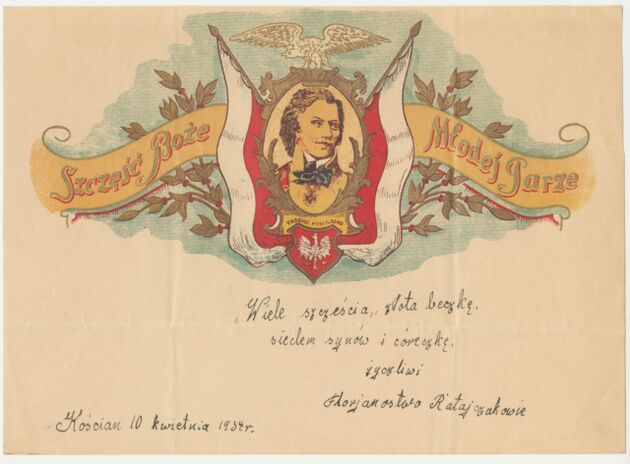 Szczęść Boże
Młodej Parze
TADEUSZ KOŚCIUSZKO
„Wiele szczęścia„ złota beczkę.
siedem synów i córeczkę.
życzliwi
Florjanostwo Ratajczakowie
Kościan 10 kwietnia 1934r.